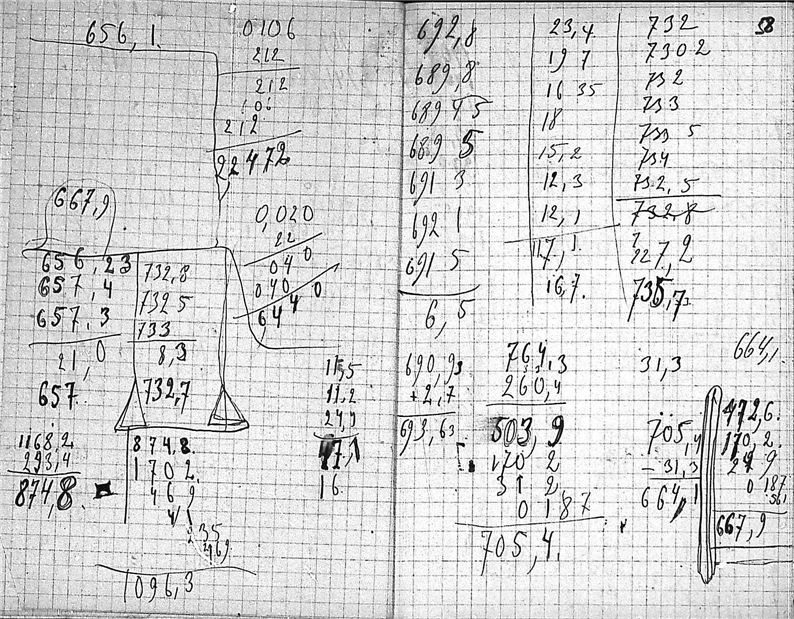 656,1.
0106
212
212
106
212
22472
667,9
656,23
657,4
657,3
21,0
657.
732,8
732 5
733
8,3
732,7
0,020
22
04 0
040 0
644
11,5
11,2
24,9
47,1
16
1168 2
293,4
874,8.
874,8.
1702.
469
1096,3
692,8
689,8
689 45
689 5
691 3
692 1
691 5
6,5
690,93
+2,7
693,63
23,4
19 7
16 35
18
15,2
12,3
12,1
117,1.
16,7.
732
730 2
732
733
733 5
734
732,5
732,8
227,2
735,73
58
764,3
260,4
503,9
170 2
31 2
0187
705,4.
31,3
705,4
-31,3
664,1
664,1
472,6.
170,2.
24 9
0 187
561
667,9